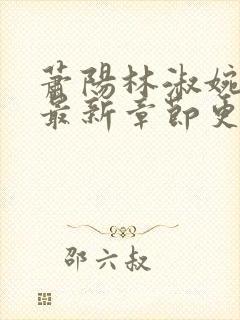 萧陽林淑婉
最新章節更
邵六叔